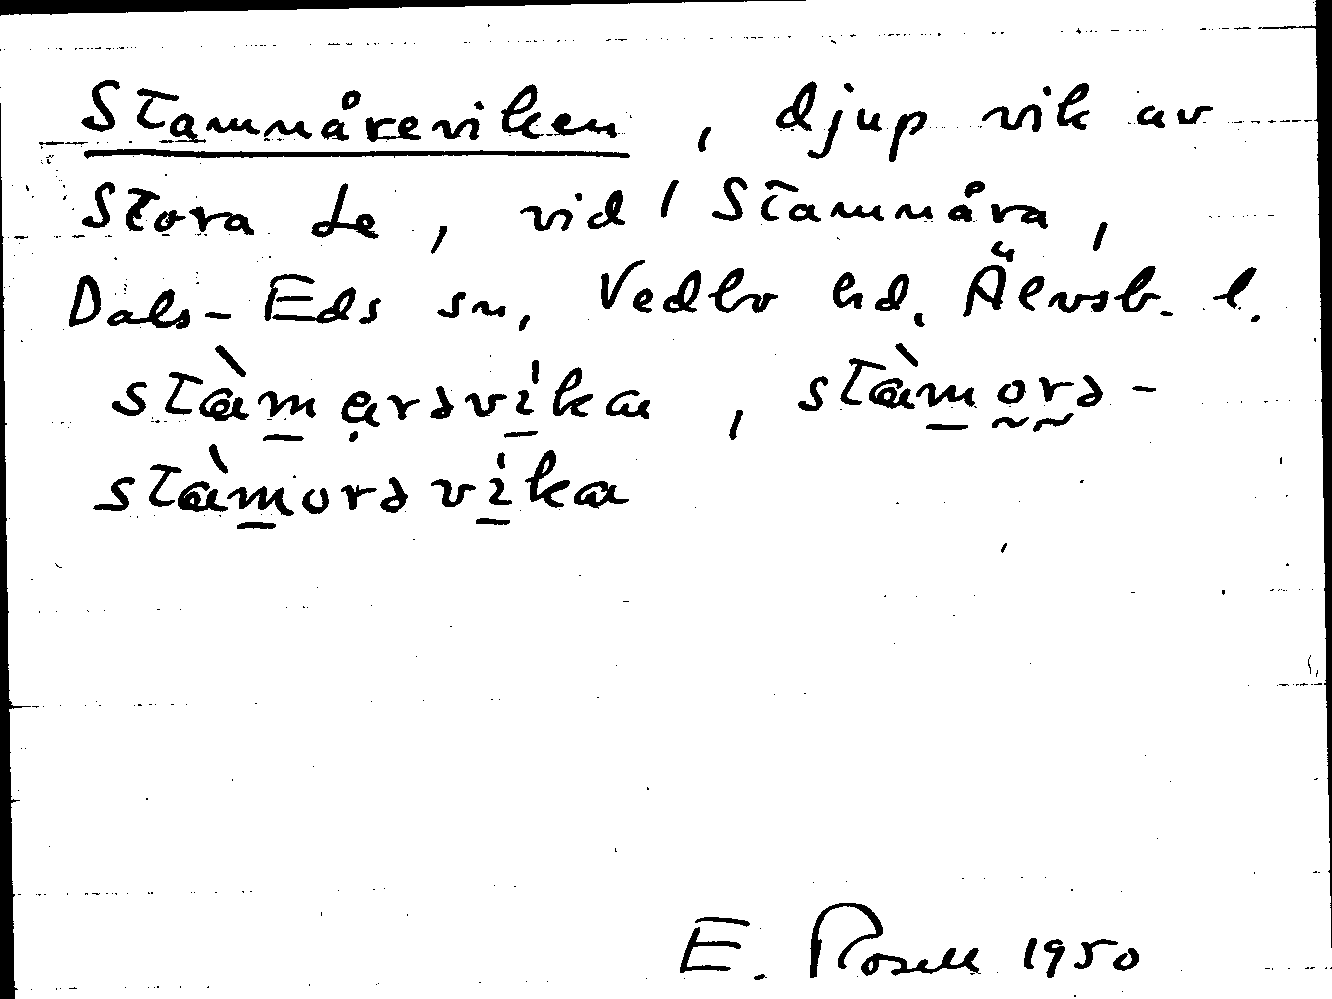 Stamnåreviken, djup vik av
Stora Le, vid 1 Stamnåra,
Dals-Eds sn, Vedbo hd, Älvsb. l.
stàmạrəvi̍ka, stàmorə-
stàmorəvi̍ka
E. Rosell 1950